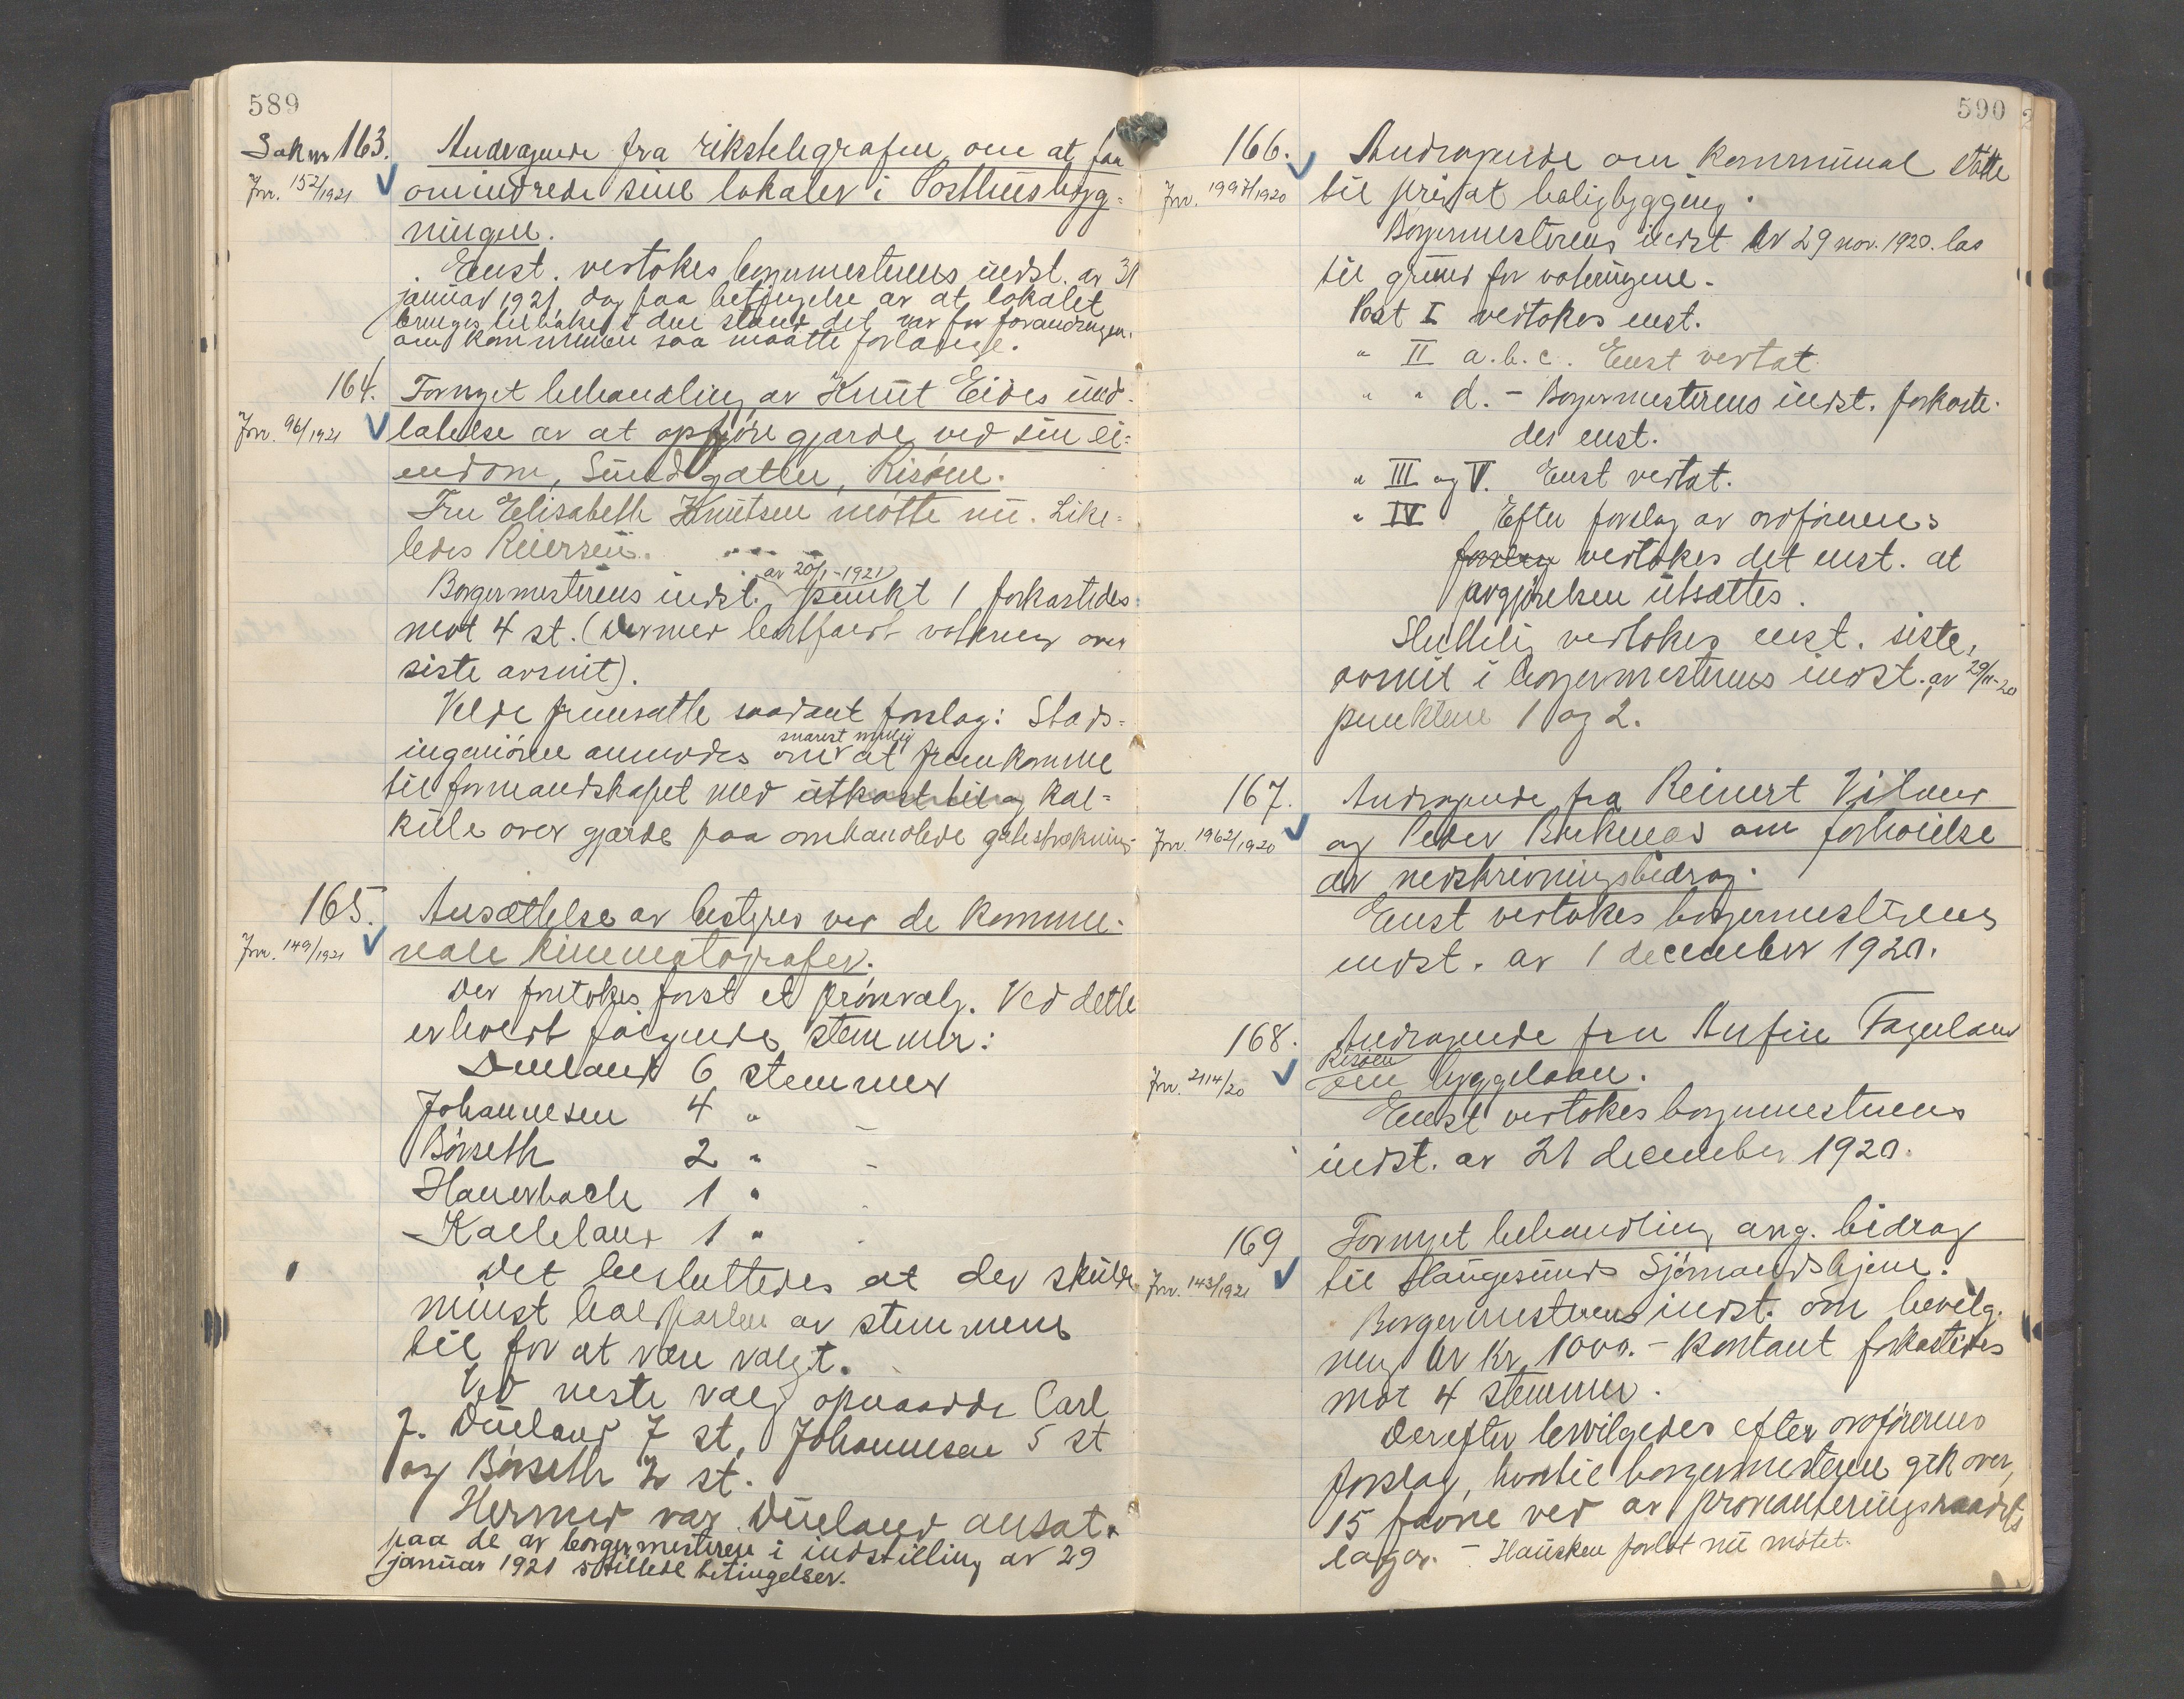 589
Sak nr 163. Andragende fra rikstelegrafen om at faa
Jnr. 152/1921 omindrede sine lokaler i Posthusbyg=
ningen.
Enst. vedtokes borgermesterens indst. av 31
januar 1921, dog paa betingelse av at lokalet
bringes tilbake i den stand det var før forandringen,
om kommunen saa maatte forlange.
164. Fornyet behandling av Knut Eides und-
Jnr. 96/1921 latelse av at opføre gjærde ved sin ei=
endom, Sundgaten, Risøen.
Fru Elisabeth Knutsen møtte nu. Like=
ledes Reiersen.
av 20/1-1921
Borgermesterens indst. punkt 1 forkastedes
mot 4 st. (Dermed bortfaldt votering over
siste avsnit).
Velde fremsatte saadant forslag: Stads=
ingeniøren anmodes om snarest mulig at fremkomme
til formandskapet med utkast til og kal=
kule over gjærde paa omhandlede gatestrækning.
165. Ansættelse av bestyrer ved de kommu-
Jnr. 149/1921 nale kinematografer.
Der foretokes først et prøvevalg. Ved dette
erholdt følgende stemmer:
Dueland 6 stemmer
Johannesen 4 "
Børseth 2 "
Hauerbach 1 "
Kalleland 1 "
Det besluttedes at der skulde
minst halvparten av stemmene
til for at være valgt.
Ved næste valg opnaadde Carl
J. Dueland 7 st, Johannesen 5 st
og Børseth 2 st.
Hermed var Dueland ansat
paa de av borgermesteren i indstilling av 29
januar 1921 stillede betingelser.
590
166. Andragende om kommunal støtte
Jnr. 1997/1920 til privat boligbygging.
Borgermesterens indst. av 29 nov. 1920. las
til grund for voteringene.
Post I vedtokes enst.
" II a. b. c. Enst vedtat
" " d. - Borgermesterens indst. forkaste-
des enst.
" III og V. Enst vedtat.
" IV Efter forslag av ordførerens
forslag vedtokes det enst. at
avgjørelsen utsættes.
Sluttelig vedtokes enst. siste
avsnit i borgermesterens indst. av 29/11-20
punktene 1 og 2.
167. Andragende fra Reinert Viland
Jnr. 1962/1920 og Peder Birkenes om forhøielse
av nedskrivningsbidrag.
Enst vedtokes borgermesterens
indst. av 1 december 1920.
168. Andragende fra Anfin Fageland
Risøen
Jnr. 2114/20 om byggelaan.
Enst vedtokes borgermesterens
indst. av 21 december 1920.
169 Fornyet behandling ang. bidrag
Jnr. 143/1921 til Haugesunds Sjømandshjem.
Borgermesterens indst. om bevilg-
ning av kr. 1000.- kontant forkastedes
mot 4 stemmer.
Derefter bevilgedes efter ordførerens
forslag, hvortil borgermesteren gik over,
15 favne ved av provianteringsraadets
lager. - Hausken forlot nu møtet.